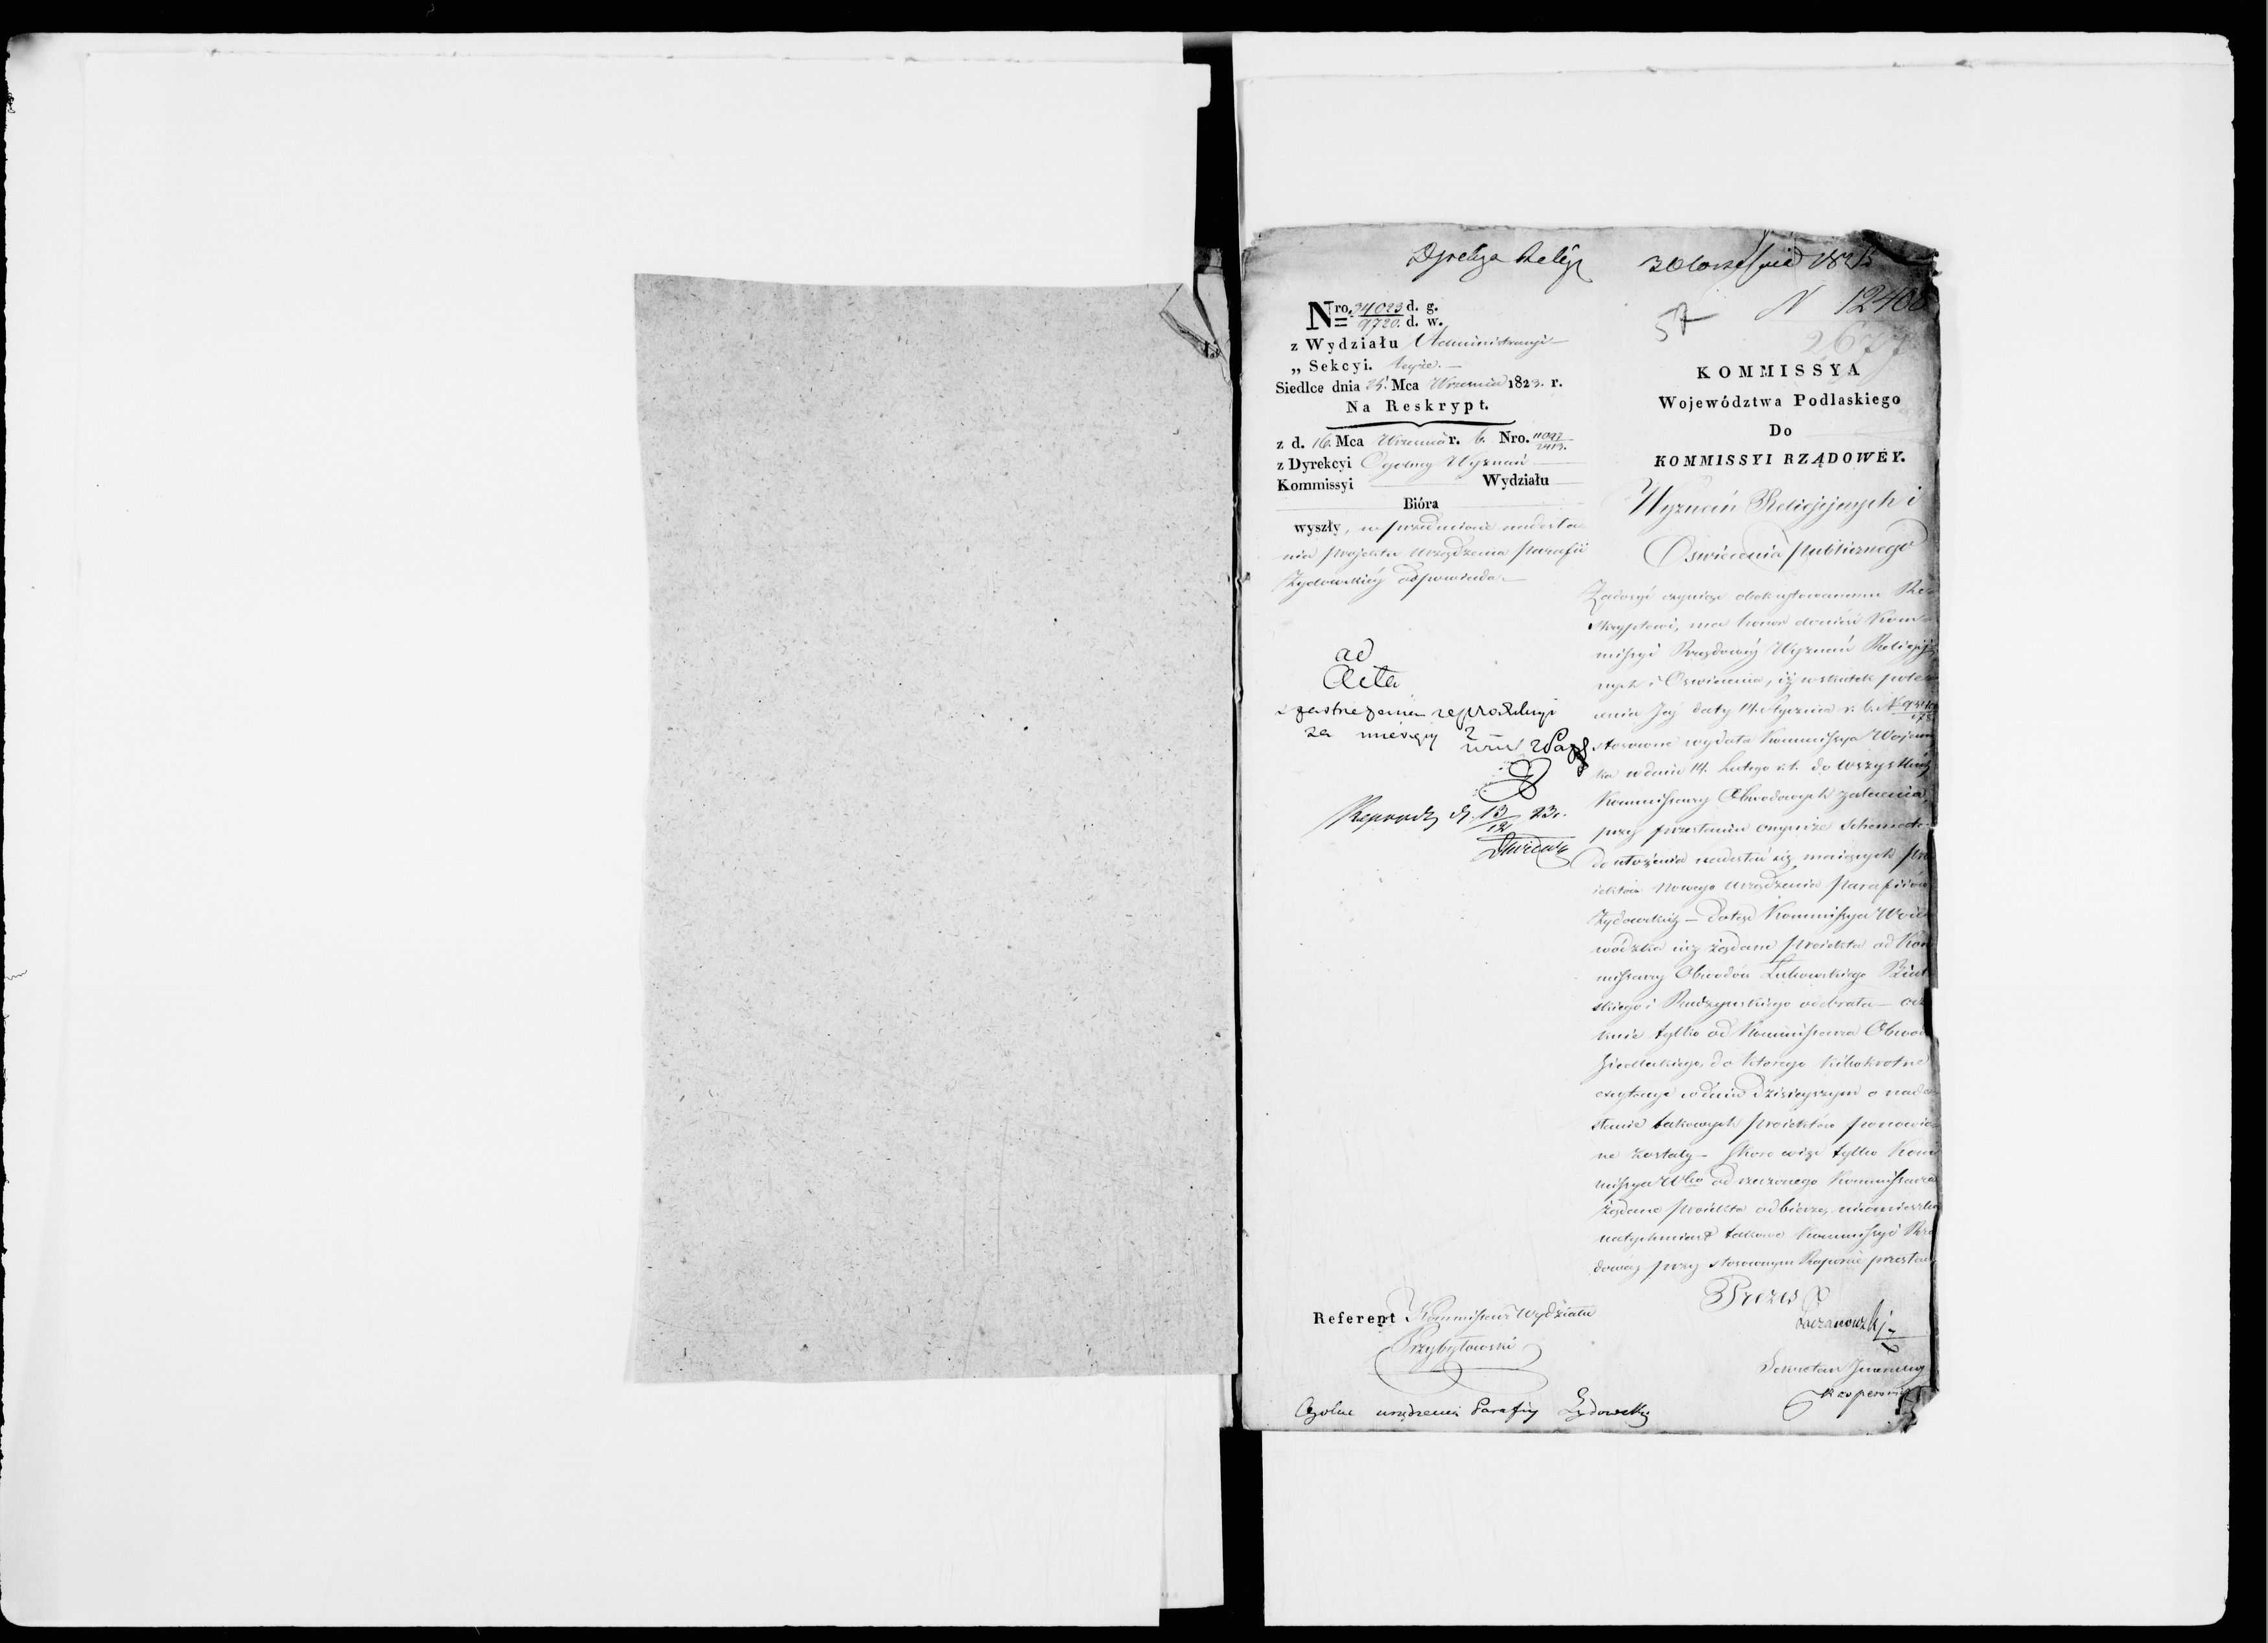 Dyrekcya Religi
30 Września 1823
N 12408
57
2677
Nro. 34023 d. g.
9720. d. w.
z Wydziału Administracyi
„ Sekcyi. teyże.
Siedlce dnia 25. Mca Września 1823. r.
Na Reskrypt.
z d. 16. Mca Września r. b. Nro. 11097
2413.
z Dyrekcyi Ogolney Wyznań
Kommissyi Wydziału
Bióra
wyszły, w przedmiocie nadesła-
nia projektu urządzenia Parafii
Żydowskiéy odpowiada.
ad
Acta
z zastrzeżeniem reprodukcyi
za miesięcy 2
Reprod. d. 13/12 23.
KOMMISSYA
Województwa Podlaskiego
Do
KOMMISSYI RZĄDOWEY.
Wyznań Religijnych i
Oświecenia Publicznego
Zadosyć czyniąc obokcytowanemu Re-
skryptowi, ma honor donieść Kom-
missyi Rządowéy Wyznań Religij-
nych i Oświecenia, iż wskutek pole-
cenia Jej daty 14. Stycznia r. b. N
stosowne wydała Kommissya Wojewódz
ka w dniu 14. Lutego r. t. do wszystkich
Kommissarzy Obwodowych zalecenia,
przy przesłaniu onymże schematu
do ułożenia nadesłać się maiących pro
iektów Nowego urządzenia Parafiiów
Żydowskich – Dotąd Kommissya Woie
wódzka iuż żądane proiekta od Kom
missarzy Obwodów Łukowskiego Bial
skiego i Radzyńskiego odebrała – ocze
kuie tylko od Kommissarza Obwodu
Siedleckiego, do którego kilkokrotne
excytacye w dniu dzisieyszym o nade
słanie takowych proiektów ponowio
ne zostały – Skoro więc tylko Kom
missya Wka od rzeczonego Kommissarza
żądane proiekta odbierze, nieomieszka
natychmiast takowe Kommissyi Rzą
dowey przy stosownym Raporcie przesłać
Prezes
Referent Kommissarz Wydziału
Przybyłowski
Sekretarz Jeneralny
Ogólne urządzenia Parafiy Żydowskiey